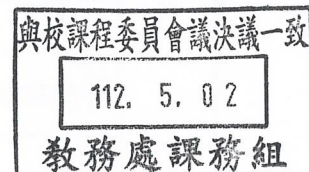 與校課程委員會議決議一致
112. 5. 02
教務處課務組